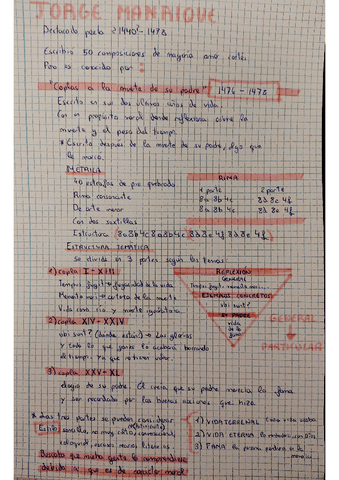 JORGE MANRIQUE
Destacado poeta ≥1440?- 1478
Escribió 50 composiciones de mayoría amor cortés
Pero es conocido por:
"Coplas a la muerte de su padre" 1476 - 1478
Escrito en sus dos últimos años de vida.
Con propósito moral donde reflexiona sobre la
muerte y el paso del tiempo.
* Escrito después de la muerte de su padre, algo que
le marca.
MÉTRICA
40 estrofas de pie quebrado
Rima consonante
De arte menor
Con dos sextillas
RIMA
1 parte 2 parte
8a 8b 4c 8d 8e 4f
8a 8b 4c 8d 8e 4f
Estructura 8a8b4c 8a8b4c 8d8e4f 8d8e4f
ESTRUCTURA TEMÁTICA
Se divide en 3 partes según los temas:
1) copla I - XIII
Tempus fugit → fugacidad de la vida
Memento mori → certeza de la muerte
Vida como río y muerte igualitaria
2) copla XIV - XXIV
ubi sunt? (dónde están) → Las glorias
y todo lo que ganó lo acabará borrando
el tiempo. Ya que retienen valor.
3) copla XXV - XL
elogio de su padre. Él creía que su padre merecía la fama
y ser recordado por las buenas acciones que hizo
REFLEXIÓN
GENERAL
Tempus fugit, memento mori...
EJEMPLOS CONCRETOS
ubi sunt?
SU PADRE
vida
de la
fama
GENERAL
PARTICULAR
* Las tres partes se pueden considerar
1) VIDA TERRENAL
2) VIDA ETERNA
3) FAMA
Estilo: sencillo, no muy culto, conversacional,
coloquial, escasos recursos literarios.
Buscaba que mucha gente lo comprendiese
debido a que es de carácter moral